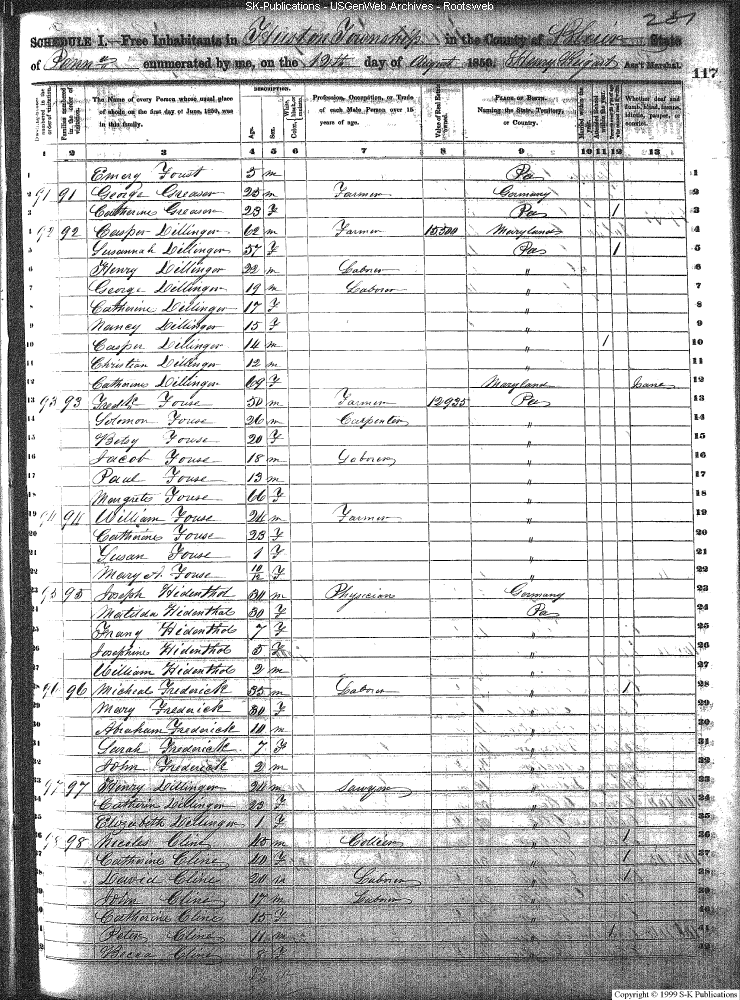 SK-Publications - USGenWeb Archives - Rootsweb
SCHEDULE I.—Free Inhabitants in Huston Township in the County of Blair State
of Penna enumerated by me, on the 12th day of August 1850. Ass't Marshal.
117
DESCRIPTION.
The Name of every Person whose usual place of abode on the first day of June, 1850, was in this family.
Age.
Sex.
Profession, Occupation, or Trade of each Male Person over 15 years of age.
Value of Real Estate owned.
PLACE OF BIRTH. Naming the State, Territory, or Country.
1 2 3 4 5 6 7 8 9 10 11 12 13
1 Emery Foust 5 m Pa 1
2 91 91 George Creaser 25 m Farmer Germany 2
3 Catherine Creaser 23 F Pa 1 3
4 92 92 Casper Dillinger 62 m Farmer Maryland 4
5 Susannah Dillinger 57 F Pa 1 5
6 Henry Dillinger 22 m Laborer " 6
7 George Dillinger 19 m Laborer " 7
8 Catherine Dillinger 17 F " 8
9 Nancy Dillinger 15 F " 9
10 Casper Dillinger 14 m " 1 10
11 Christian Dillinger 12 m " 11
12 Catherine Dillinger 69 F Maryland Insane 12
13 93 93 Fredk Fouse 50 m Farmer 12935 Pa 13
14 Solomon Fouse 26 m Carpenter " 14
15 Betsy Fouse 20 F " 15
16 Jacob Fouse 18 m Laborer " 16
17 Paul Fouse 13 m " 17
18 Margrete Fouse 66 F " 18
19 94 94 William Fouse 24 m Farmer " 19
20 Catherine Fouse 23 F " 20
21 Susan Fouse 1 F " 21
22 Mary A. Fouse 10/12 F " 22
23 95 95 Joseph Hidenthol 30 m Physician Germany 23
24 Matilda Hidenthal 30 F Pa 24
25 Frany Hidenthol 7 F " 25
26 Josephine Hidenthol 5 F " 26
27 William Hidenthol 2 m " 27
28 96 96 Micheal Frederick 35 m Laborer " 1 28
29 Mary Frederick 30 F " 29
30 Abraham Frederick 10 m " 30
31 Sarah Frederick 7 F " 31
32 John Frederick 2 m " 32
33 97 97 Henry Dillinger 24 m Sawyer " 33
34 Catherin Dillinger 23 F " 34
35 Elizabeth Dillinger 1 F " 35
36 98 98 Cline 45 m Collier " 1 36
37 Catharine Cline 40 F " 1 37
38 David Cline 20 m Laborer " 1 38
39 John Cline 17 m Laborer " 39
40 Catherine Cline 15 F " 40
41 Peter Cline 11 m " 41
42 Cline 8 F " 42
Copyright © 1999 S-K Publications